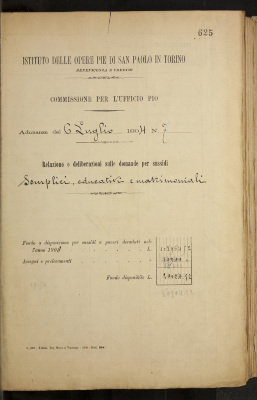 625
ISTITUTO DELLE OPERE PIE DI SAN PAOLO IN TORINO
BENEFICENZA E CREDITO
COMMISSIONE PER L'UFFICIO PIO
Adunanza del 6 Luglio 1904 N. 7
Relazione e deliberazioni sulle domande per sussidi
Semplici, educativi e matrimoniali
Fondo a disposizione per sussidi a poveri decaduti nel-
l'anno 1904 L.
Assegni e prelevamenti
Fondo disponibile L.